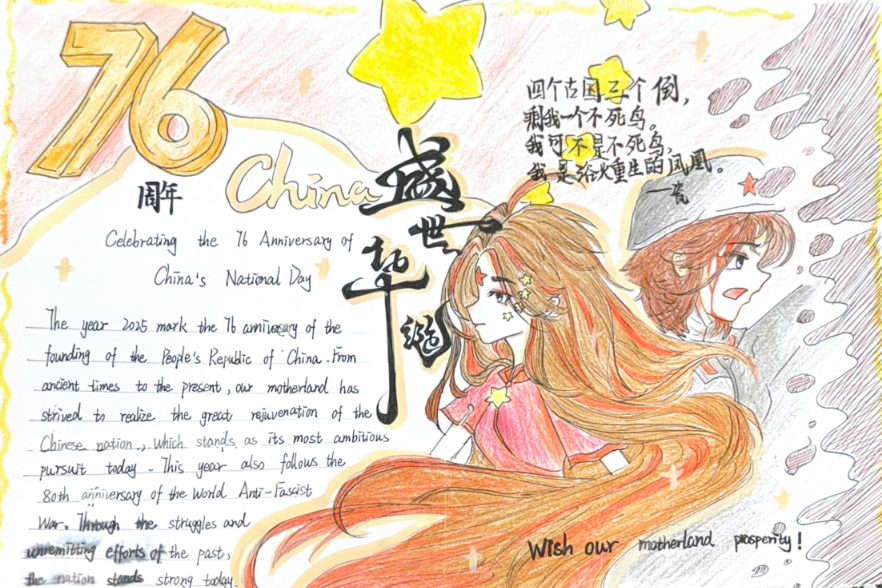 76
周年
China
Celebrating the 76 Anniversary of
China's National Day
The year 2025 mark the 76 anniversary of the
founding of the People's Republic of China. From
ancient times to the present, our motherland has
strived to realize the great rejuvenation of the
Chinese nation, which stands as its most ambitious
pursuit today. This year also follows the
80th anniversary of the World Anti-Fascist
War. Through the struggles and
unremitting efforts of the past,
the nation stands strong today.
盛世华
四个古国三个倒，
剩我一个不死鸟。
我可不是不死鸟，
我是浴火重生的凤凰。
一瓷
Wish our motherland prosperity!